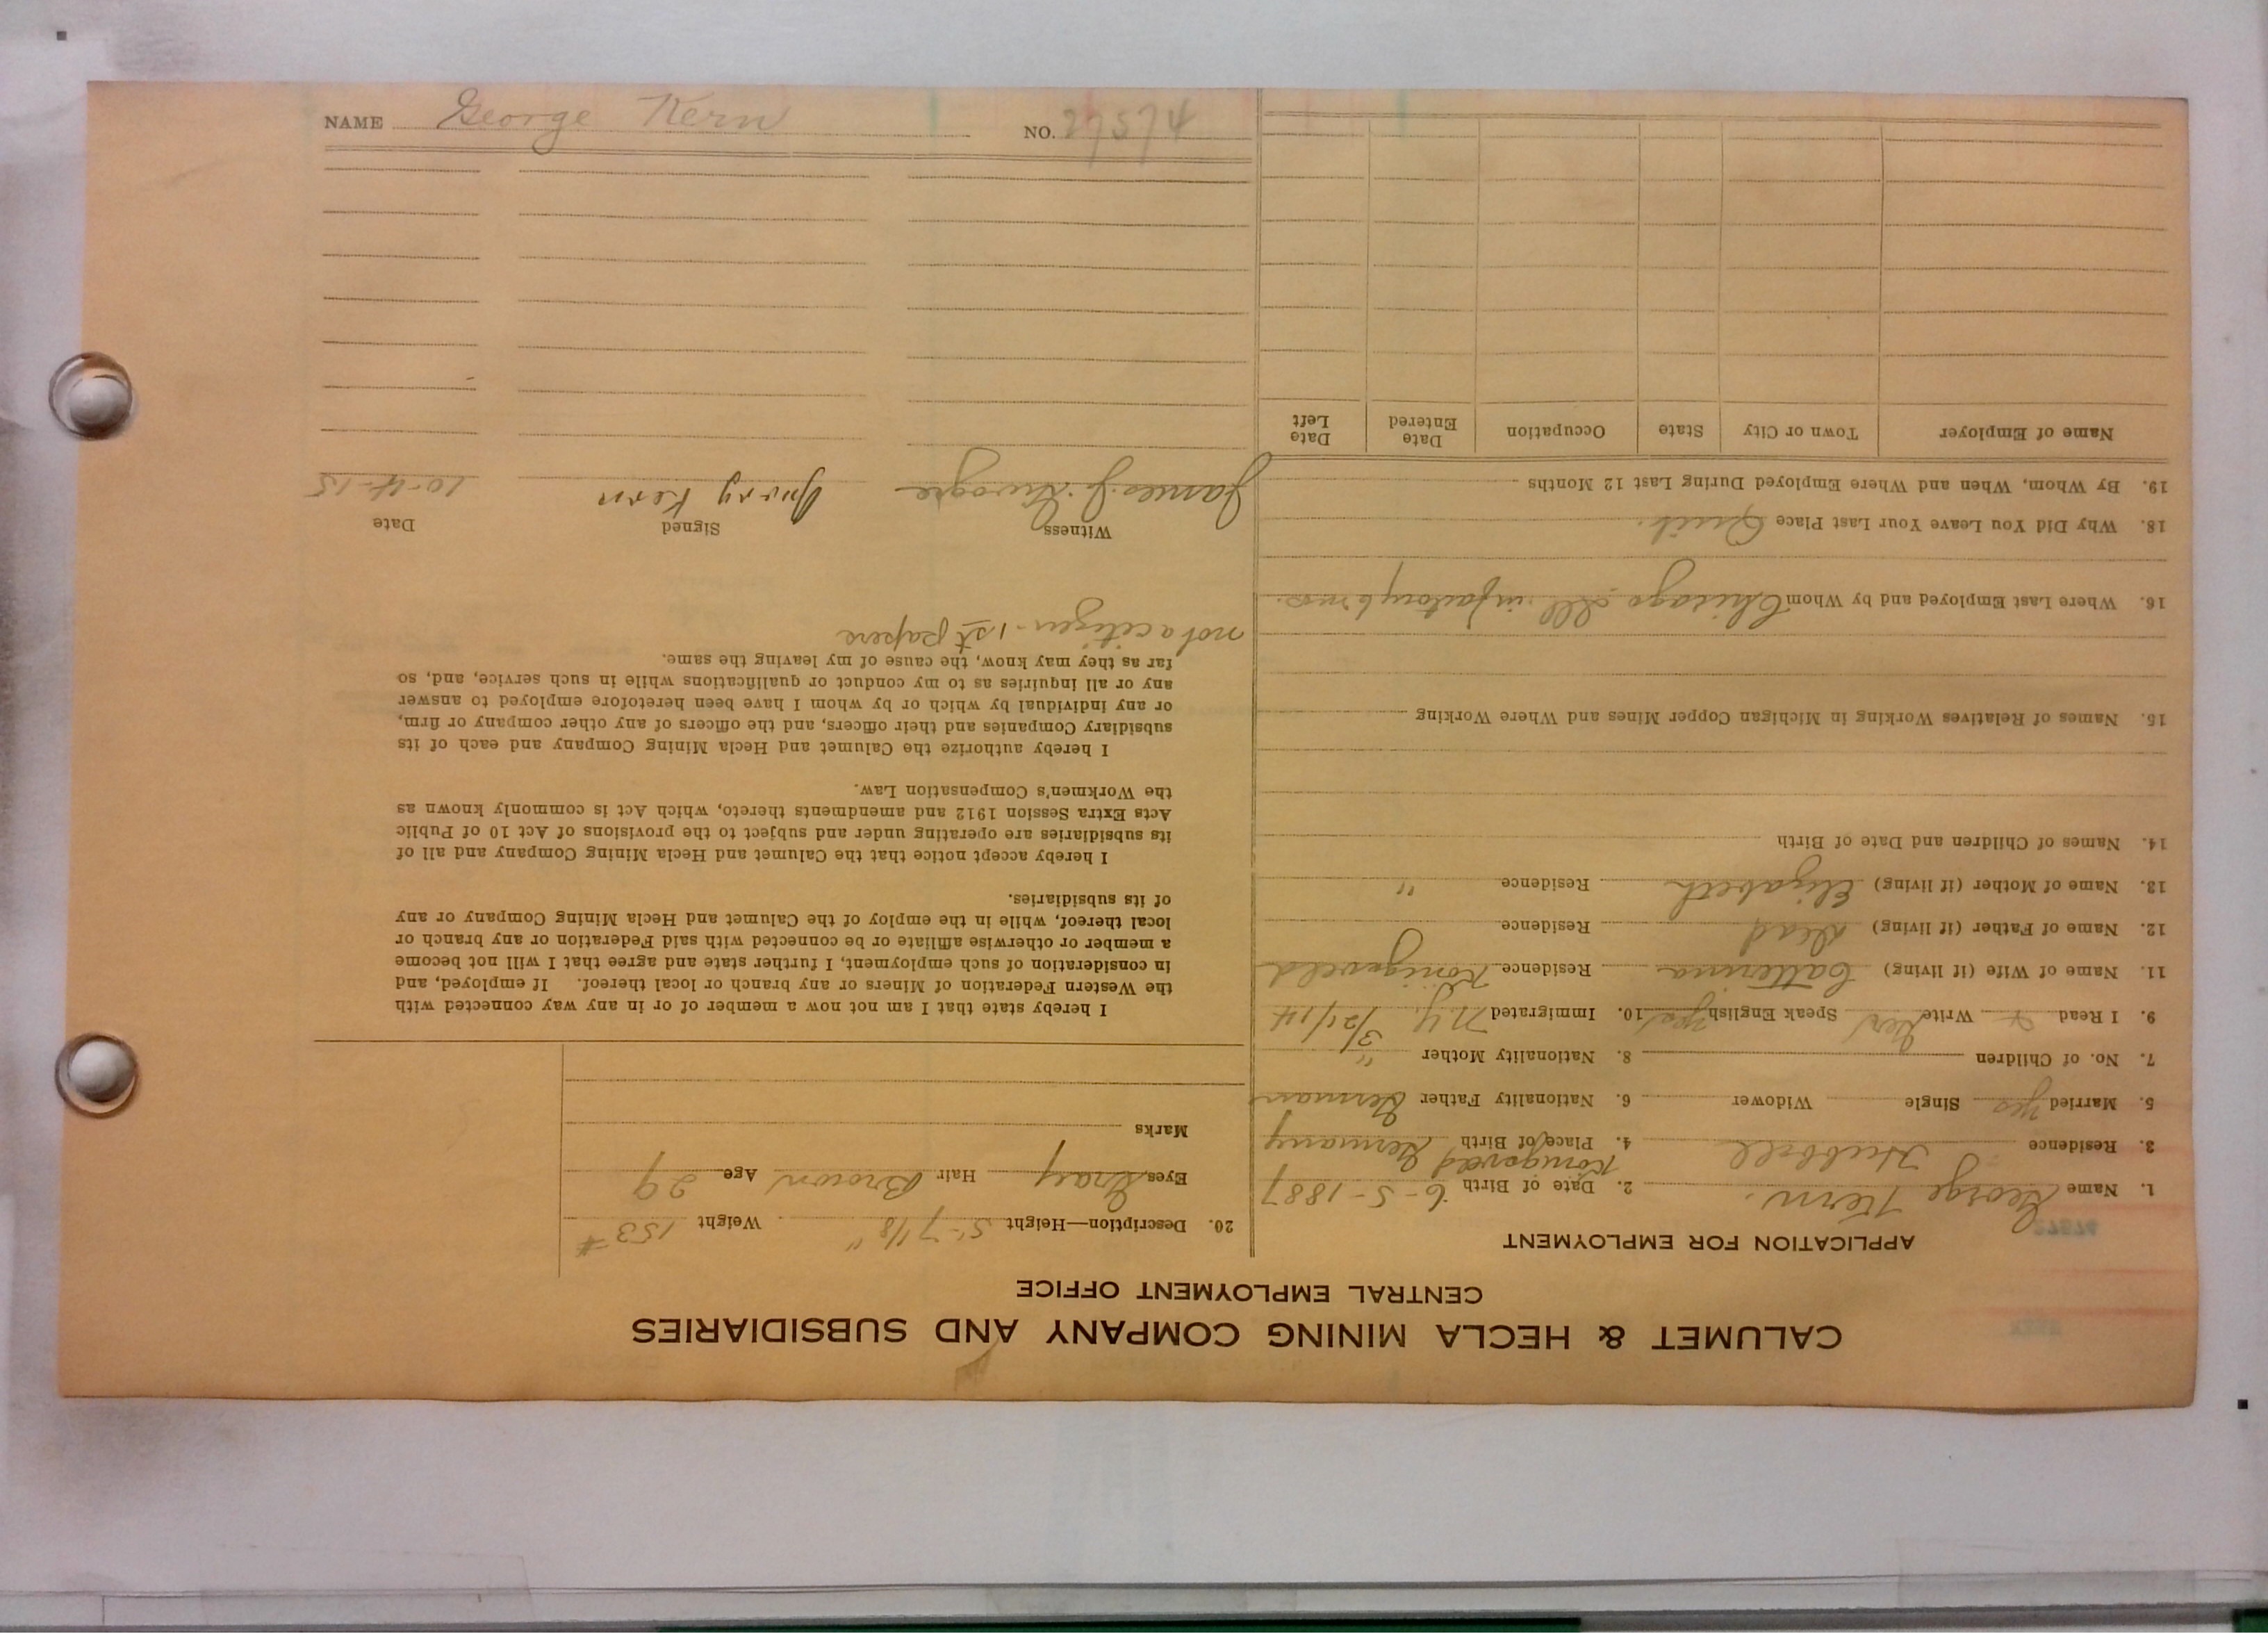 CALUMET & HECLA MINING COMPANY AND SUBSIDIARIES
CENTRAL EMPLOYMENT OFFICE
APPLICATION FOR EMPLOYMENT
1. Name George Kern. 2. Date of Birth 6-5-1887
3. Residence Hubbell 4. Place of Birth Germany
5. Married yes Single Widower 6. Nationality Father German
7. No. of Children 8. Nationality Mother "
9. I Read Write Speak English yes 10. Immigrated N.Y. 3/21/14
11. Name of Wife (if living) Catterina Residence
12. Name of Father (if living) Dead Residence
13. Name of Mother (if living) Elizabeth Residence "
14. Names of Children and Date of Birth
15. Names of Relatives Working in Michigan Copper Mines and Where Working
16. Where Last Employed and by Whom Chicago Ill in factory 6 mos.
18. Why Did You Leave Your Last Place Quit.
19. By Whom, When and Where Employed During Last 12 Months
Name of Employer Town or City State Occupation Date Entered Date Left
20. Description—Height 5-7 1/8" Weight 153 #
Eyes Gray Hair Brown Age 29
Marks
I hereby state that I am not now a member of or in any way connected with
the Western Federation of Miners or any branch or local thereof. If employed, and
in consideration of such employment, I further state and agree that I will not become
a member or otherwise affiliate or be connected with said Federation or any branch or
local thereof, while in the employ of the Calumet and Hecla Mining Company or any
of its subsidiaries.
I hereby accept notice that the Calumet and Hecla Mining Company and all of
its subsidiaries are operating under and subject to the provisions of Act 10 of Public
Acts Extra Session 1912 and amendments thereto, which Act is commonly known as
the Workmen's Compensation Law.
I hereby authorize the Calumet and Hecla Mining Company and each of its
subsidiary Companies and their officers, and the officers of any other company or firm,
or any individual by which or by whom I have been heretofore employed to answer
any or all inquiries as to my conduct or qualifications while in such service, and, so
far as they may know, the cause of my leaving the same.
not a citizen - 1st papers
Witness Signed Date
James J. Kern 10-4-15
NAME George Kern NO. 27574